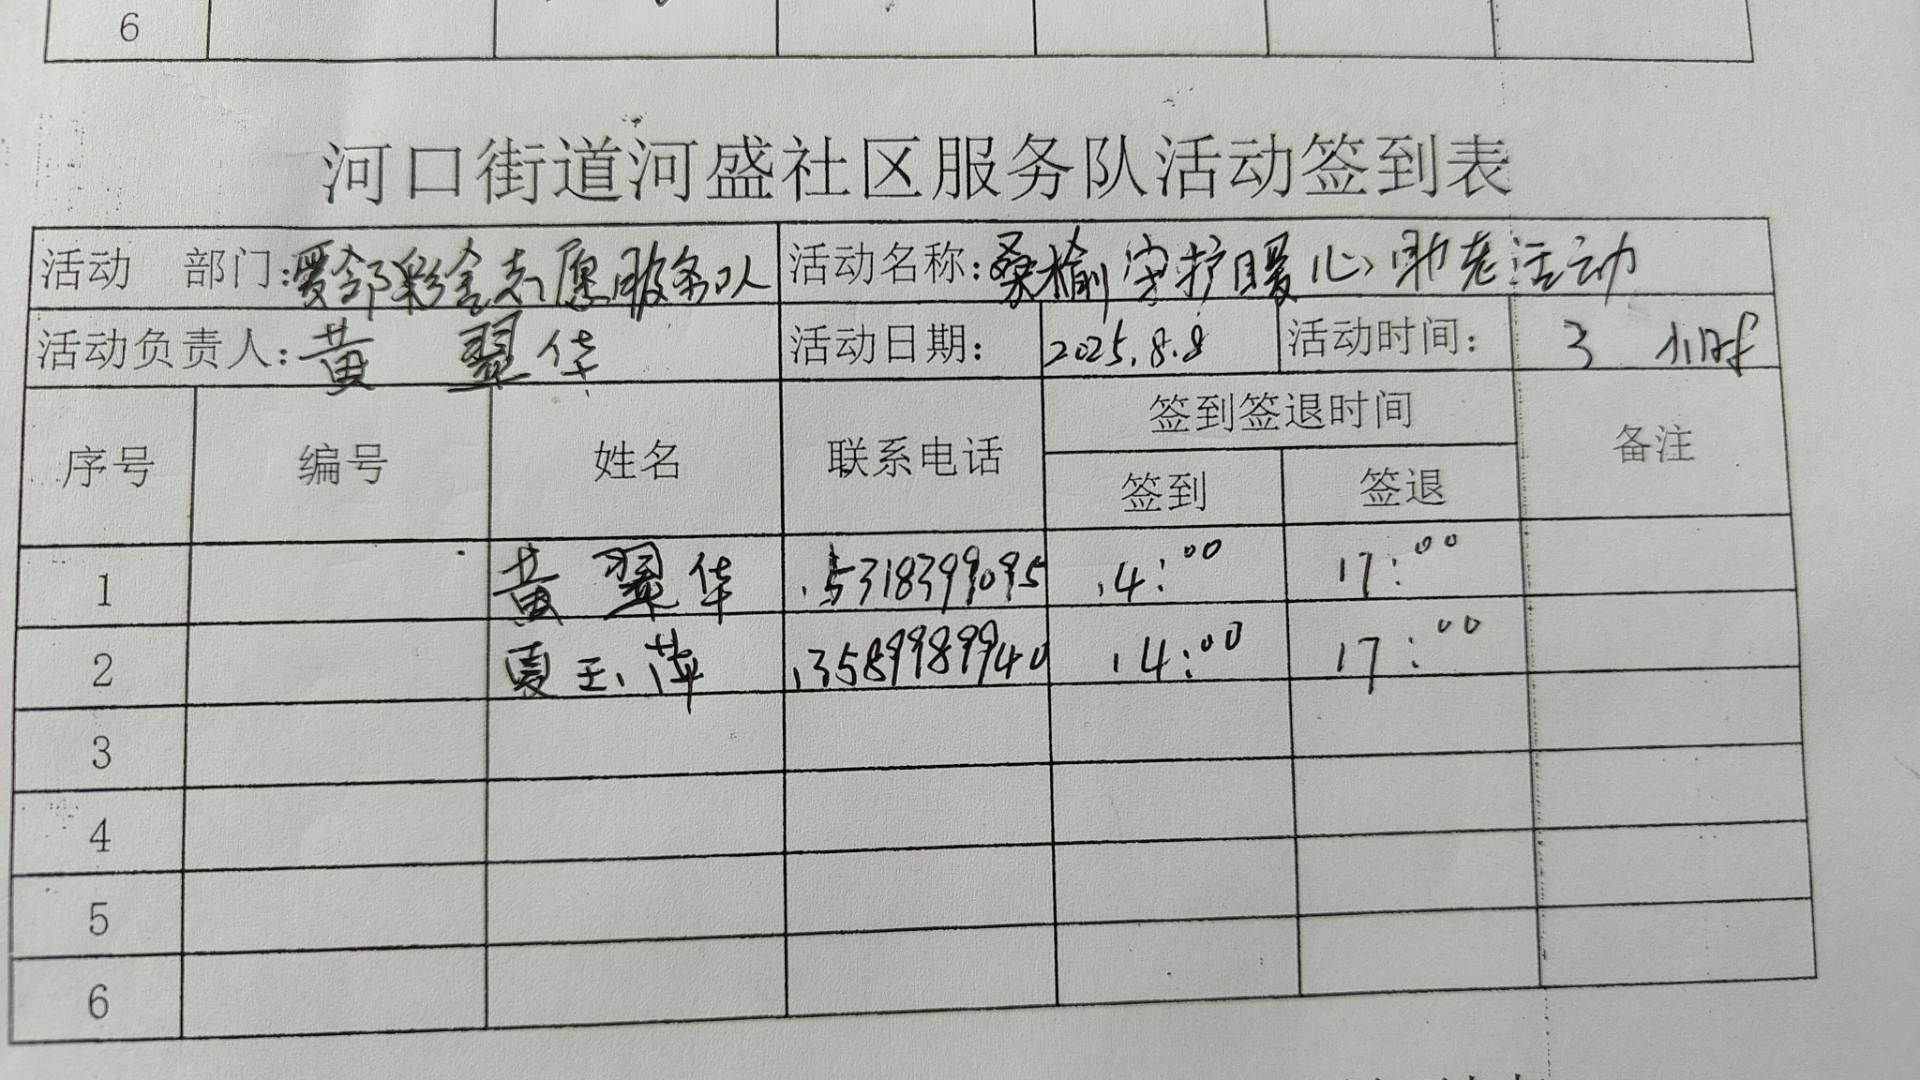 6
河口街道河盛社区服务队活动签到表
活动 部门:爱邻彩舍志愿服务队 活动名称:桑榆守护暖心助老活动
活动负责人:黄翠华 活动日期: 2025.8.8 活动时间: 3 小时
序号 编号 姓名 联系电话 签到签退时间 备注
签到 签退
1 黄翠华 15318399095 14:00 17:00
2 夏玉萍 13589989940 14:00 17:00
3
4
5
6